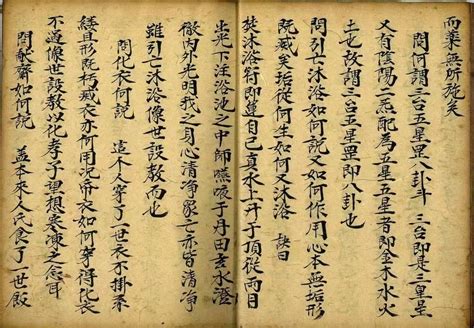 而藥無所施矣
問何謂三台五星罡八卦斗 三台即是三星
又有陰陽二炁配為五星五星者即金木水火
土也故謂三台五星罡即八卦也
問引亡沐浴如何說又如何作用心本無垢形
既滅矣垢從何生如何又沐浴 訣曰
焚沐浴符即運自己真水上升于頂從兩目
出光下注浴池之中師嚥液于丹田玄水澄
徹內外光明我之身心清淨眾亡亦皆清淨
雖引亡沐浴像世設教而也
問化衣何說 這个人穿了一世衣不掛絲
縷且形既朽滅衣亦何用況帛衣如何穿得化衣
不過像世設教以化孝子望想寒凍之念耳
問獻齋如何說 蓋本來人民食了一世飯